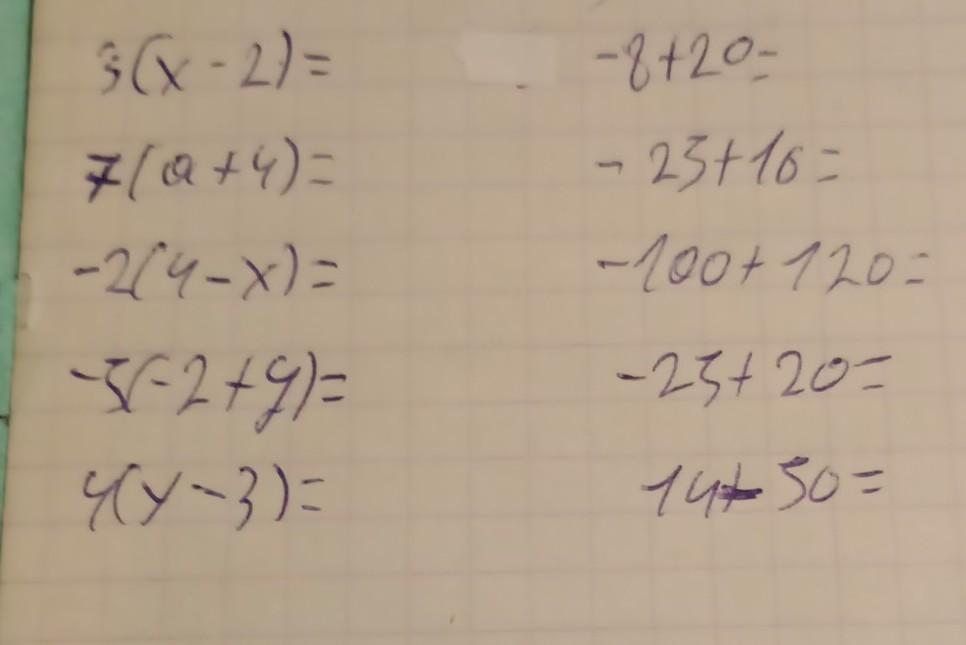 3(x-2)= -8+20=
7(a+4)= -25+16=
-2(4-x)= -100+120=
-5(-2+y)= -25+20=
4(y-3)= 14-50=